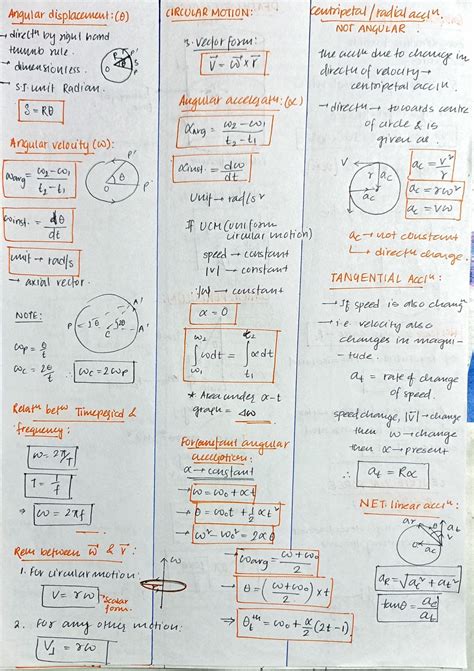 Angular displacement: (θ)
→ directⁿ by right hand
thumb rule.
→ dimensionless.
→ S.I unit Radian.
S = Rθ
Angular velocity (ω):
ωavg = ω2 - ω1 / t2 - t1
ωinst. = dθ / dt
unit → rad/s
→ axial vector.
NOTE:
ωp = θ/t
ωc = 2θ/t
∴ ωc = 2ωp
Relatⁿ betⁿ Timeperiod &
frequency:
ω = 2π/T
T = 1/f
⇒ ω = 2πf
Relⁿ between ω⃗ & v⃗:
1. For circular motion:
V = rω
Scalar form.
2. For any other motion:
V⊥ = rω
CIRCULAR MOTION:
3. vector form:
V⃗ = ω⃗ × r⃗
Angular acceleratⁿ: (α)
αavg = ω2 - ω1 / t2 - t1
αinst. = dω / dt
Unit → rad/s²
# UCM (uniform
circular motion)
speed → constant
|V| → constant
∴ |ω| → constant
α = 0
∫ ωdt = ∫ αdt
* Area under α-t
graph = Δω
For constant angular
acceleration:
α → constant
→ ω = ω0 + αt
→ θ = ω0t + 1/2 αt²
→ ω² - ω0² = 2αθ
→ ωavg = ω + ω0 / 2
→ θ = (ω + ω0 / 2) × t
→ θtth = ω0 + α/2 (2t - 1)
Centripetal / radial acclⁿ:
NOT ANGULAR
The acclⁿ due to change in
directⁿ of velocity →
centripetal acclⁿ.
→ directⁿ → towards centre
of circle & is
given as.
ac = v²/r
ac = rω²
ac = vω
ac → not constant
↳ directⁿ change.
TANGENTIAL Acclⁿ:
→ If speed is also chang
→ i.e velocity also
changes in magni
-tude.
at = rate of change
of speed.
speed change, |V| → change
then ω → change
then α → present
∴ at = Rα
NET linear acclⁿ:
aR = √ac² + at²
tanθ = ac / at